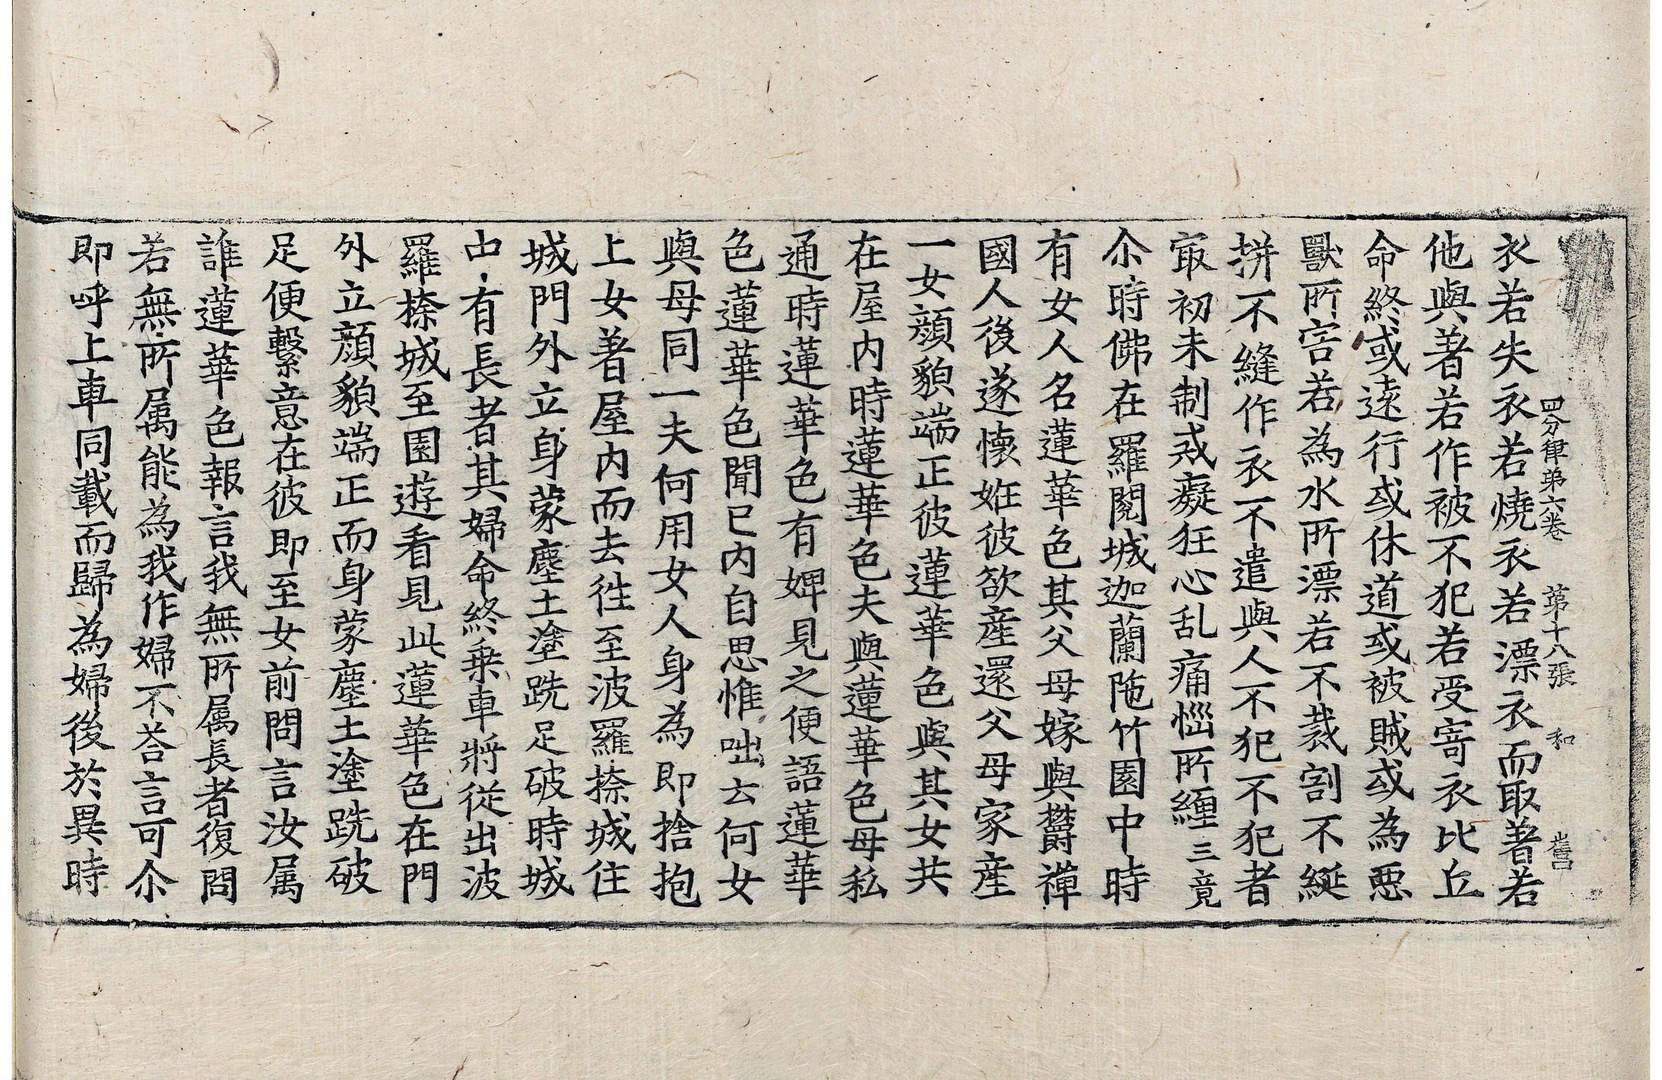 四分律第六卷 第十八張 和
衣若失衣若燒衣若漂衣而取著若
他與著若作被不犯若受寄衣比丘
命終或遠行或休道或被賊或為惡
獸所害若為水所漂若不裁割不綖
拼不縫作衣不遣與人不犯不犯者
冣初未制戒癡狂心乱痛惱所纏三竟
尒時佛在羅閱城迦蘭陁竹園中時
有女人名蓮華色其父母嫁與欝禪
國人後遂懷妊彼欲產還父母家產
一女顏貌端正彼蓮華色與其女共
在屋內時蓮華色夫與蓮華色母私
通時蓮華色有婢見之便語蓮華
色蓮華色聞已內自思惟咄去何女
與母同一夫何用女人身為即捨抱
上女著屋內而去徃至波羅㮈城住
城門外立身蒙塵土塗跣足破時城
中有長者其婦命終乗車將從出波
羅㮈城至園遊看見此蓮華色在門
外立顏貌端正而身蒙塵土塗跣破
足便繫意在彼即至女前問言汝属
誰蓮華色報言我無所属長者復問
若無所属能為我作婦不荅言可尒
即呼上車同載而歸為婦後於異時